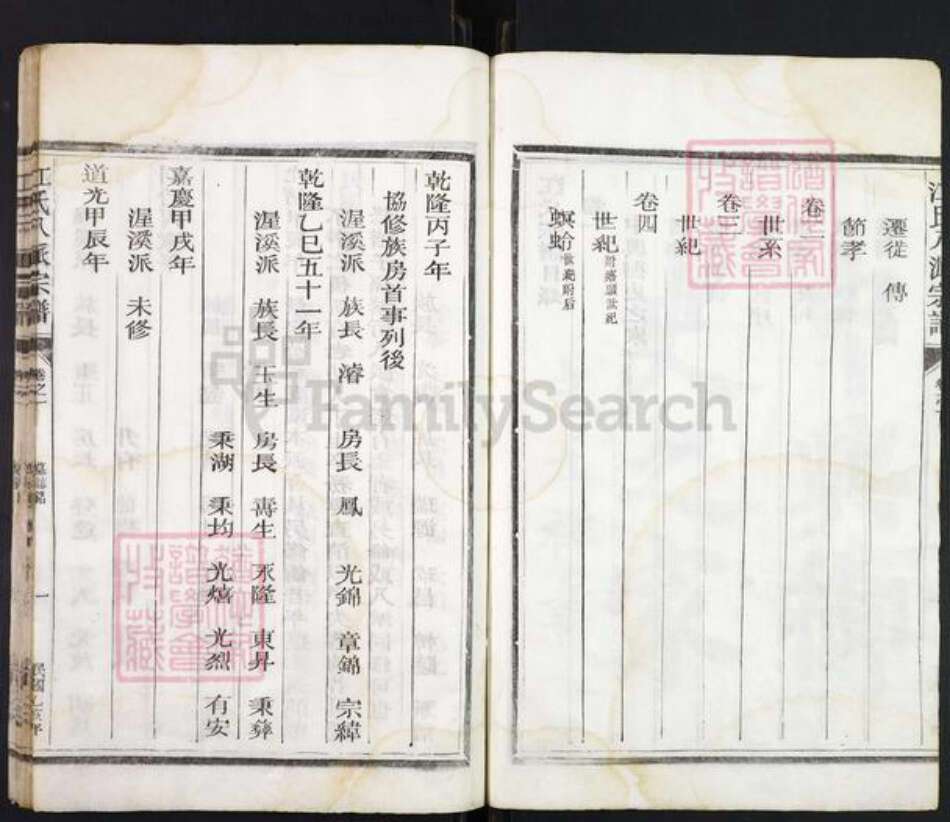 遷徙 傳
節孝
卷二
世系
卷三
世紀
卷四
世紀
螟蛉
乾隆丙子年
協修族房首事列後
渥溪派 族長 濬 房長 鳳 光錦 章錦 宗緯
乾隆乙巳五十一年
渥溪派 族長 玉生 房長 壽生 永隆 東昇 秉彝
秉湖 秉均 光熺 光烈 有安
嘉慶甲戌年
渥溪派 未修
道光甲辰年
江氏八派宗譜 卷之一 一
FamilySearch